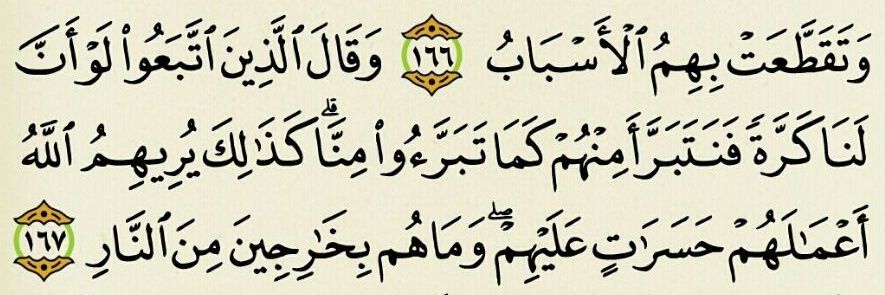 وَتَقَطَّعَتْ بِهِمُ ٱلْأَسْبَابُ ١٦٦ وَقَالَ ٱلَّذِينَ ٱتَّبَعُوا۟ لَوْ أَنَّ
لَنَا كَرَّةً فَنَتَبَرَّأَ مِنْهُمْ كَمَا تَبَرَّءُوا۟ مِنَّاۗ كَذَٰلِكَ يُرِيهِمُ ٱللَّهُ
أَعْمَٰلَهُمْ حَسَرَٰتٍ عَلَيْهِمْۖ وَمَا هُم بِخَٰرِجِينَ مِنَ ٱلنَّارِ ١٦٧